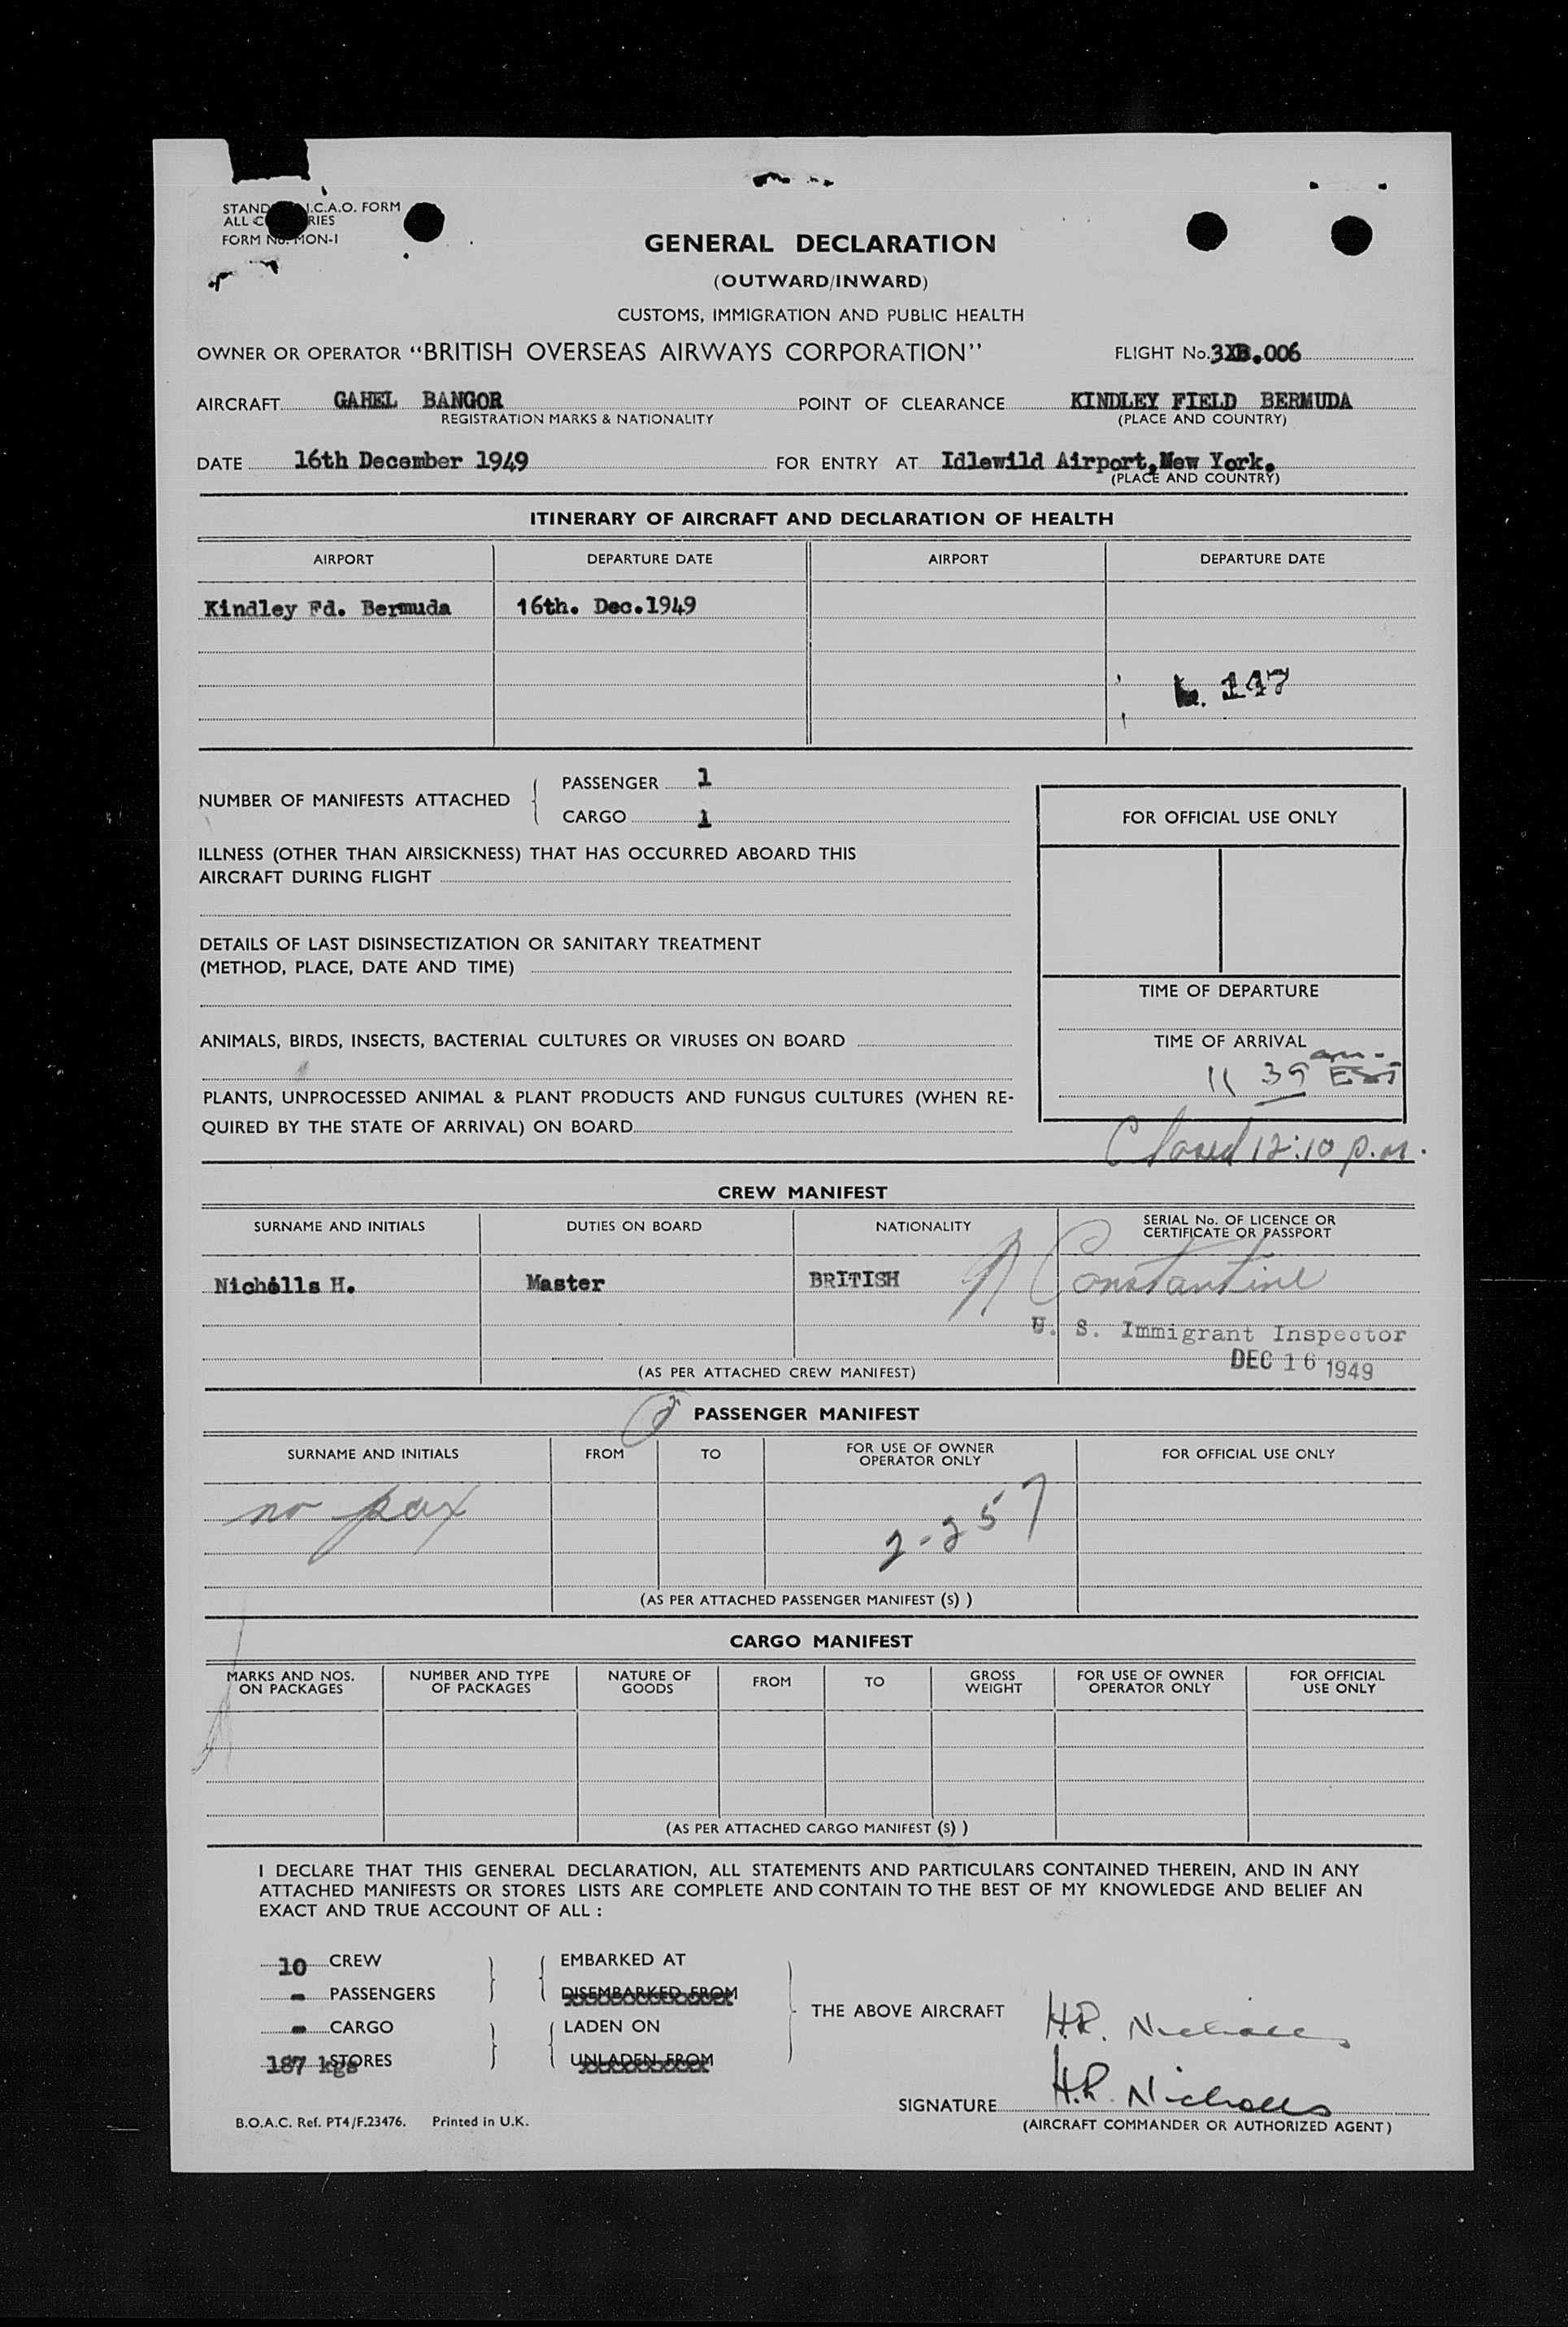 STAND I.C.A.O. FORM
ALL C RIES
FORM No. MON-1
GENERAL DECLARATION
(OUTWARD/INWARD)
CUSTOMS, IMMIGRATION AND PUBLIC HEALTH
OWNER OR OPERATOR "BRITISH OVERSEAS AIRWAYS CORPORATION" FLIGHT No. 3XB.006
AIRCRAFT GAHEL BANGOR POINT OF CLEARANCE KINDLEY FIELD BERMUDA
REGISTRATION MARKS & NATIONALITY (PLACE AND COUNTRY)
DATE 16th December 1949 FOR ENTRY AT Idlewild Airport, New York.
(PLACE AND COUNTRY)
ITINERARY OF AIRCRAFT AND DECLARATION OF HEALTH
AIRPORT DEPARTURE DATE AIRPORT DEPARTURE DATE
Kindley Fd. Bermuda 16th. Dec.1949
147
NUMBER OF MANIFESTS ATTACHED
PASSENGER 1
CARGO 1
FOR OFFICIAL USE ONLY
ILLNESS (OTHER THAN AIRSICKNESS) THAT HAS OCCURRED ABOARD THIS
AIRCRAFT DURING FLIGHT
DETAILS OF LAST DISINSECTIZATION OR SANITARY TREATMENT
(METHOD, PLACE, DATE AND TIME)
TIME OF DEPARTURE
ANIMALS, BIRDS, INSECTS, BACTERIAL CULTURES OR VIRUSES ON BOARD
TIME OF ARRIVAL
11 39 am EST
PLANTS, UNPROCESSED ANIMAL & PLANT PRODUCTS AND FUNGUS CULTURES (WHEN RE-
QUIRED BY THE STATE OF ARRIVAL) ON BOARD
Closed 12:10 p.m.
CREW MANIFEST
SURNAME AND INITIALS DUTIES ON BOARD NATIONALITY SERIAL No. OF LICENCE OR
CERTIFICATE OR PASSPORT
Nicholls H. Master BRITISH
Constantine
U. S. Immigrant Inspector
DEC 16 1949
(AS PER ATTACHED CREW MANIFEST)
PASSENGER MANIFEST
SURNAME AND INITIALS FROM TO FOR USE OF OWNER
OPERATOR ONLY FOR OFFICIAL USE ONLY
no pax
2-257
(AS PER ATTACHED PASSENGER MANIFEST (S) )
CARGO MANIFEST
MARKS AND NOS.
ON PACKAGES NUMBER AND TYPE
OF PACKAGES NATURE OF
GOODS FROM TO GROSS
WEIGHT FOR USE OF OWNER
OPERATOR ONLY FOR OFFICIAL
USE ONLY
(AS PER ATTACHED CARGO MANIFEST (S) )
I DECLARE THAT THIS GENERAL DECLARATION, ALL STATEMENTS AND PARTICULARS CONTAINED THEREIN, AND IN ANY
ATTACHED MANIFESTS OR STORES LISTS ARE COMPLETE AND CONTAIN TO THE BEST OF MY KNOWLEDGE AND BELIEF AN
EXACT AND TRUE ACCOUNT OF ALL :
10 CREW EMBARKED AT
- PASSENGERS DISEMBARKED FROM
THE ABOVE AIRCRAFT H.R. Nicholls
- CARGO LADEN ON
187 kgs STORES UNLADEN FROM
SIGNATURE H.R. Nicholls
B.O.A.C. Ref. PT4/F.23476. Printed in U.K.
(AIRCRAFT COMMANDER OR AUTHORIZED AGENT)